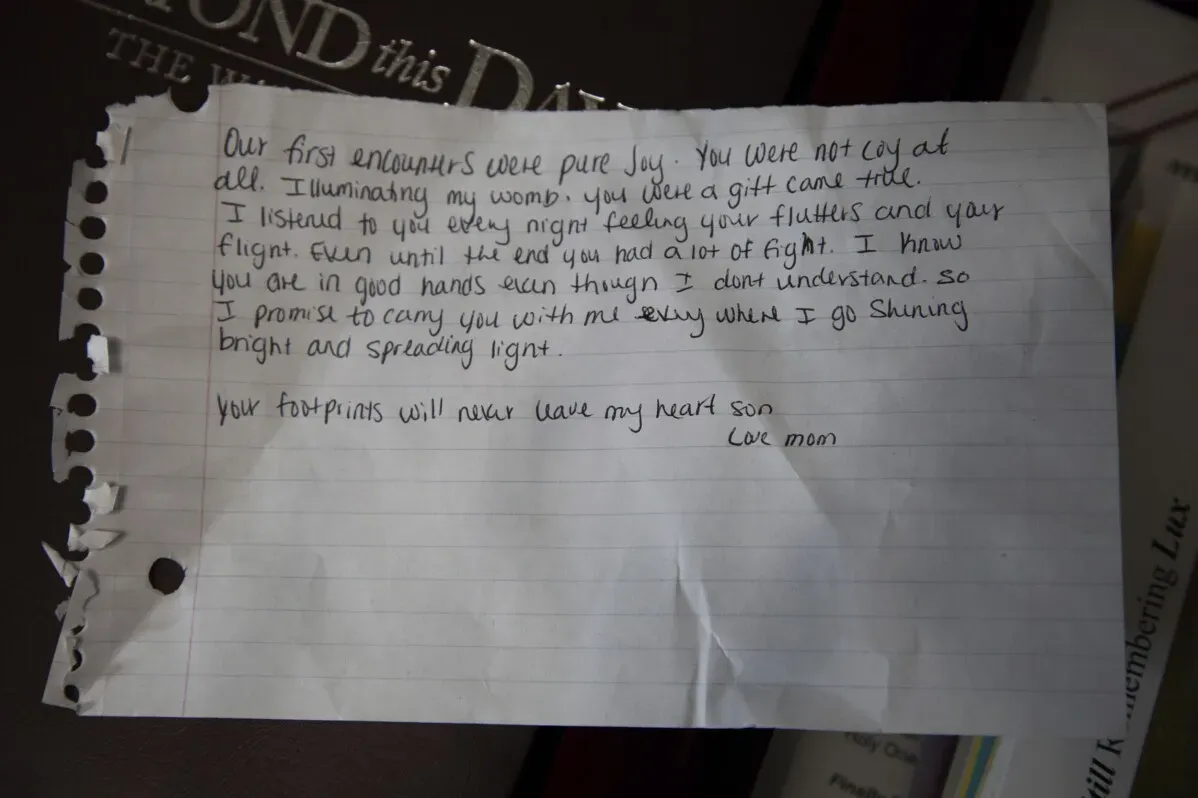 OND this DAY
THE
Our first encounters were pure Joy. You were not coy at
all. Illuminating my womb. you were a gift came true.
I listened to you every night feeling your flutters and your
flight. Even until the end you had a lot of fight. I know
you are in good hands even though I dont understand. so
I promise to carry you with me every where I go Shining
bright and spreading light.
your footprints will never leave my heart son
Love mom
Remembering Lux
Holy One
Finally